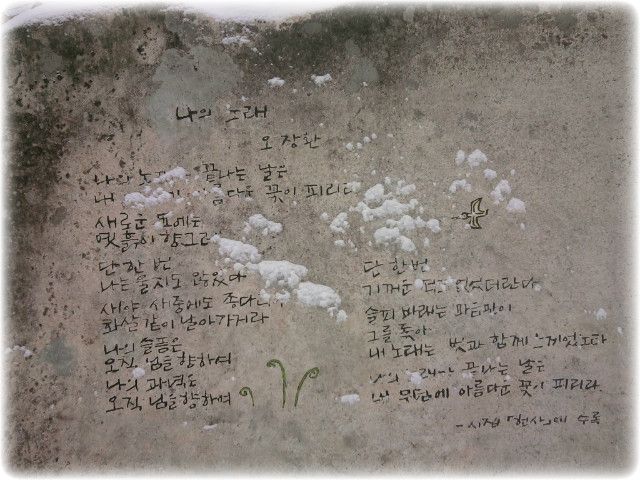 나의 노래
오장환
나의 끝나는 날은
내 꽃이 피리라
새로운 묘에는
옛흙이 향그러
단 한 번
나는 울지도 않았다
새야 새중에도 종다리
화살같이 날아가거라
나의 슬픔은
오직 님을 향하여
나의 과녁은
오직 님을 향하여
단 한번
기꺼운 적도 없었더란다
슬피 바래는 마음만이
그를 좇아
내 노래는 벗과 함께
나의 끝나는 날은
내 무덤에 아름다운 꽃이 피리라
-시집「헌사」에 수록